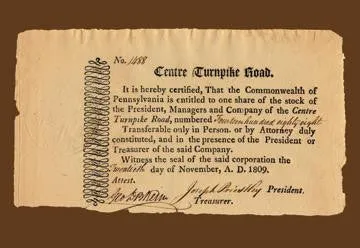 No. 1488
Centre Turnpike Road.
It is hereby certified, That the Commonwealth of
Pennsylvania is entitled to one share of the stock of
the President, Managers and Company of the Centre
Turnpike Road, numbered Fourteen hundred eighty eight
Transferable only in Person, or by Attorney duly
constituted, and in the presence of the President or
Treasurer of the said Company.
Witness the seal of the said corporation the
Twentieth day of November, A. D. 1809.
Attest.
Joseph Priestley President.
Treasurer.